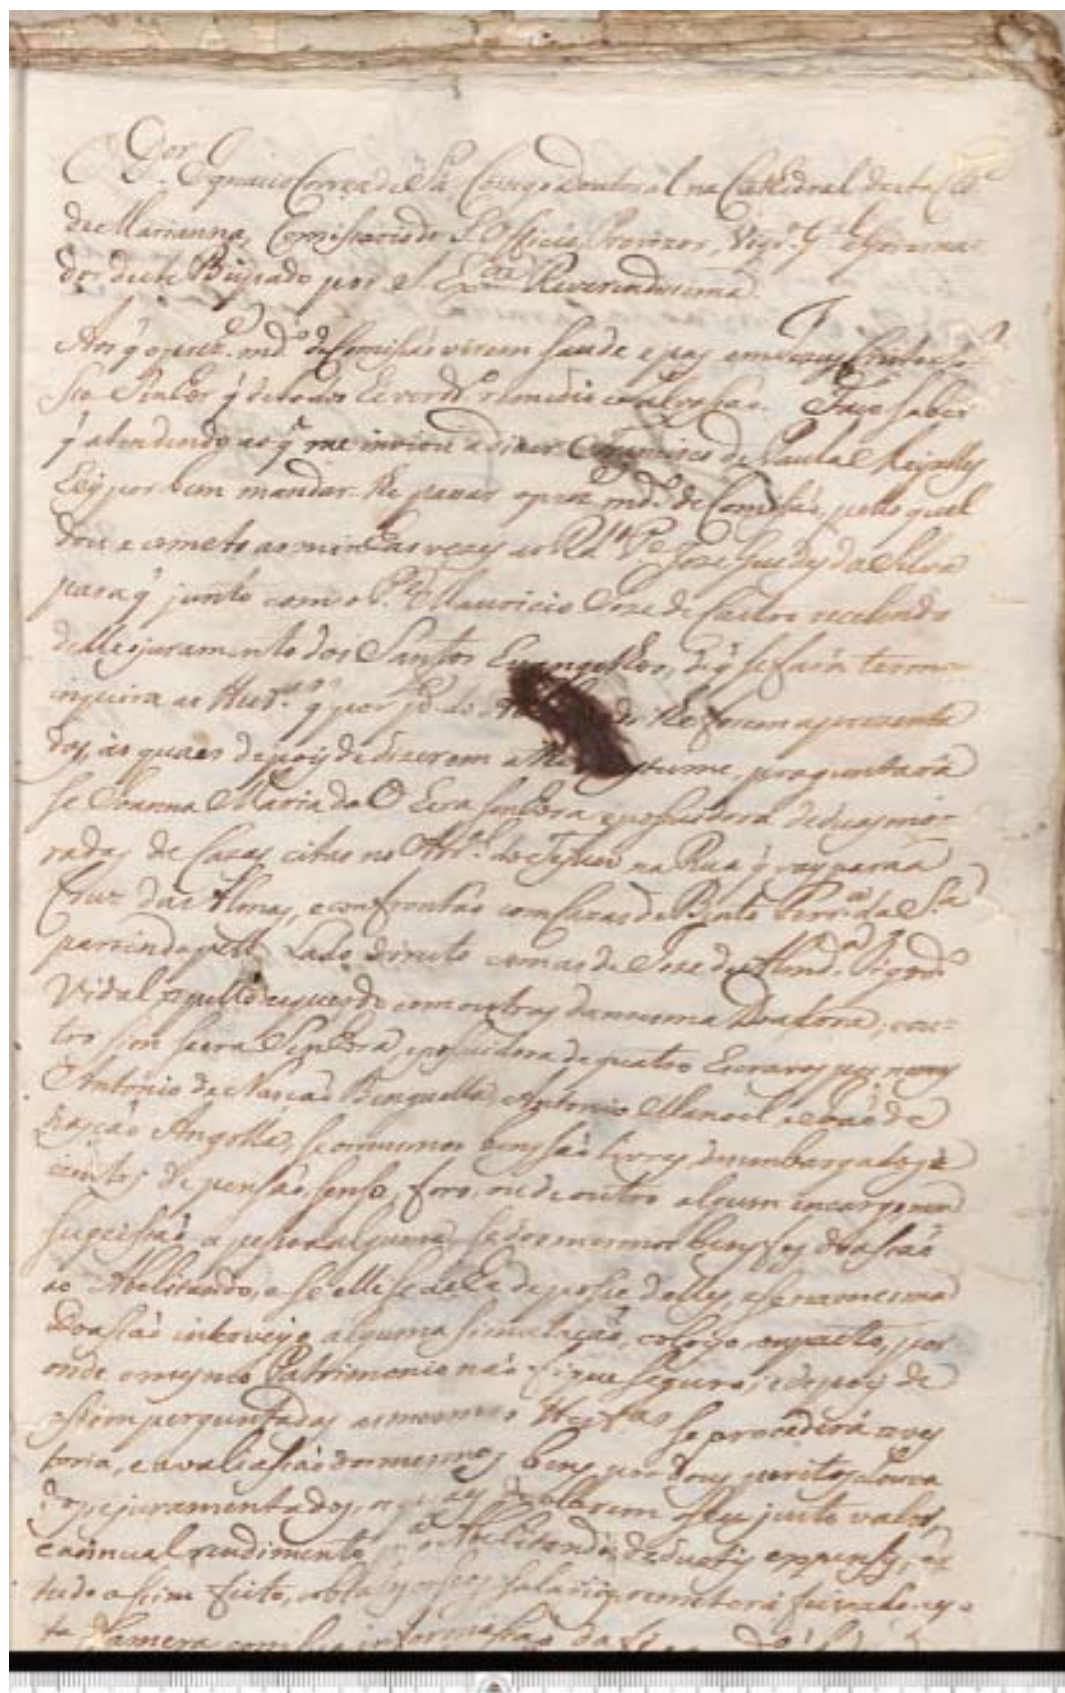 O Dor. Ignacio Correa de Sá Conego Doutoral na Cathedral desta Cide
de Marianna, Comissario do S. Officio, Provizor, Vigro. Gal. e Governa
dor deste Bispado por S. Excia. Reverendissima
Aos q o prezte. mdo. de Comissão virem saude e paz em Jezus Christo
q de todos he verdo. remedio e salvasão. Faço saber
q atendendo ao q me inviou a dizer Francisco de Paula Meyrelles
hey por bem mandar lhe pasar o prezte. mdo. de Comisão, pello qual
dou e cometo as minhas vezes ao Rdo. Pe. Joze Guedes da Silva
para q junto com o Pe. Mauricio Joze de Castro recebendo
delle o juramento dos Santos Evangelhos, de q se fará termo
inquira as q por pte. do lhe forem aprezenta
dos, as quaes depois de dizerem a tume, proguntará
se Joanna Maria do O hera senhora e possuidora de duas mo
radas de Cazas citas no Arral. do Tejuco na Rua q vay para a
Cruz das Almas, e confrontão com Cazas de Bento Perra. da Sa.
partindo pello Lado direito com as de Joze de Almda.
Vidal e pello esquerdo com outras da mesma Doadora, e ou
tro sim se era Senhora, e posuidora de quatro Escravos por nomes
Antonio de Nasção Benguella, Antonio Manoel e João de
Nasção Angolla, se os mesmos bens são livres dezembargados e
izentos de pensão, senso, foro, ou de outro algum encargo, nem
sugeissão a pessoa alguma, se dos mesmos bens fes doassão
ao Abelitando, e se elle se acha de posse delles, e se na mesma
Doassão interveyo alguma simulação, coloyo, ou pacto, por
onde o mesmo Patrimonio não fique seguro; e depois de
assim perguntadas as mesmas se procederá a ves
toria, e avaliasão dos mesmos bens por dous peritos Louva
dos, e juramentados, os quaes declarem o seu justo valor,
e annual rendimento ao Abelitando, deductis expensis, e
tudo asim feito, salarios, remeterá fixado a es
ta Camera com sua informasão